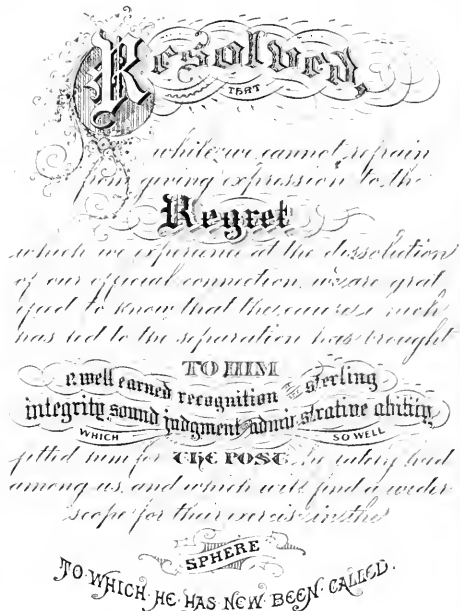 Resolved,
THAT
while we cannot refrain
from giving expression to the
Regret
which we experience at the dissolution
of our official connection, we are grat
ified to know that the cause which
has led to the separation has brought
TO HIM
a well earned recognition of the sterling
integrity, sound judgment admin strative ability,
WHICH SO WELL
fitted him for THE POST he lately had
among us, and which will find a wider
scope for their exercise in the
SPHERE
TO WHICH HE HAS NEW BEEN CALLED.